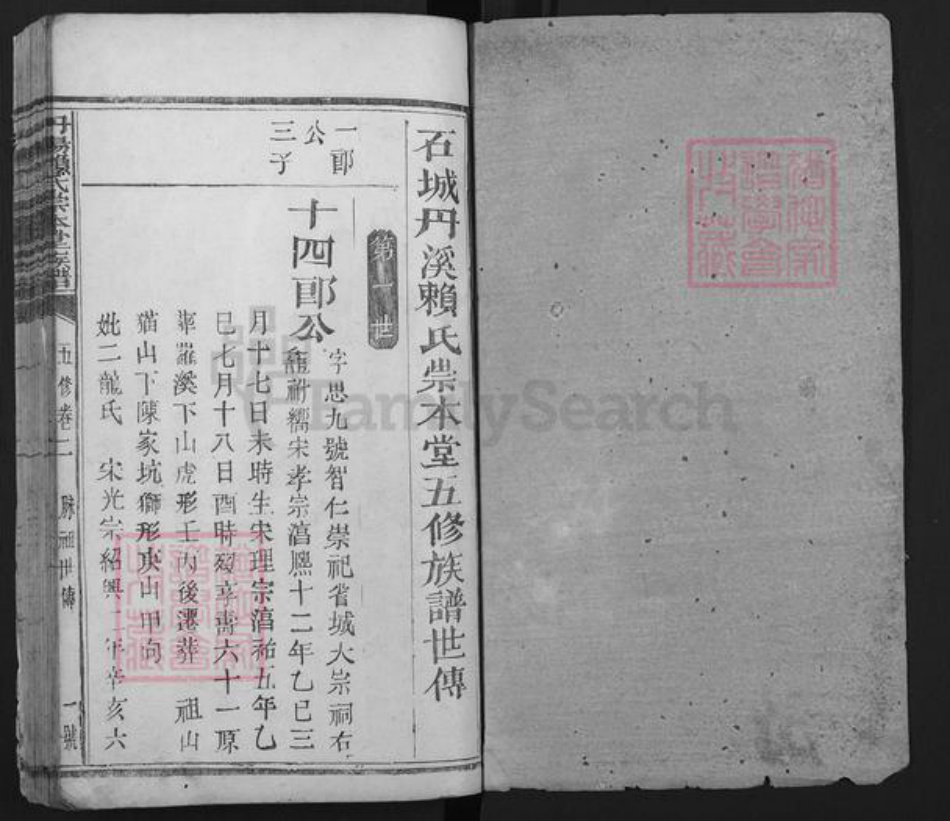 石城丹溪賴氏崇本堂五修族譜世傳
第一世
一郎
公
三子
十四郎公
字思九號智仁崇祀省城大宗祠右
龕附襦宋孝宗淳熙十二年乙巳三
月十七日未時生宋理宗淳祐五年乙
巳七月十八日酉時歿享壽六十一原
葬羅溪下山虎形壬丙後遷葬 祖山
猫山下陳家坑獅形庚山甲向
妣二龍氏 宋光宗紹興二年辛亥六
丹陽賴氏崇本堂族譜
五修卷二
祖世傳
一號
FamilySearch